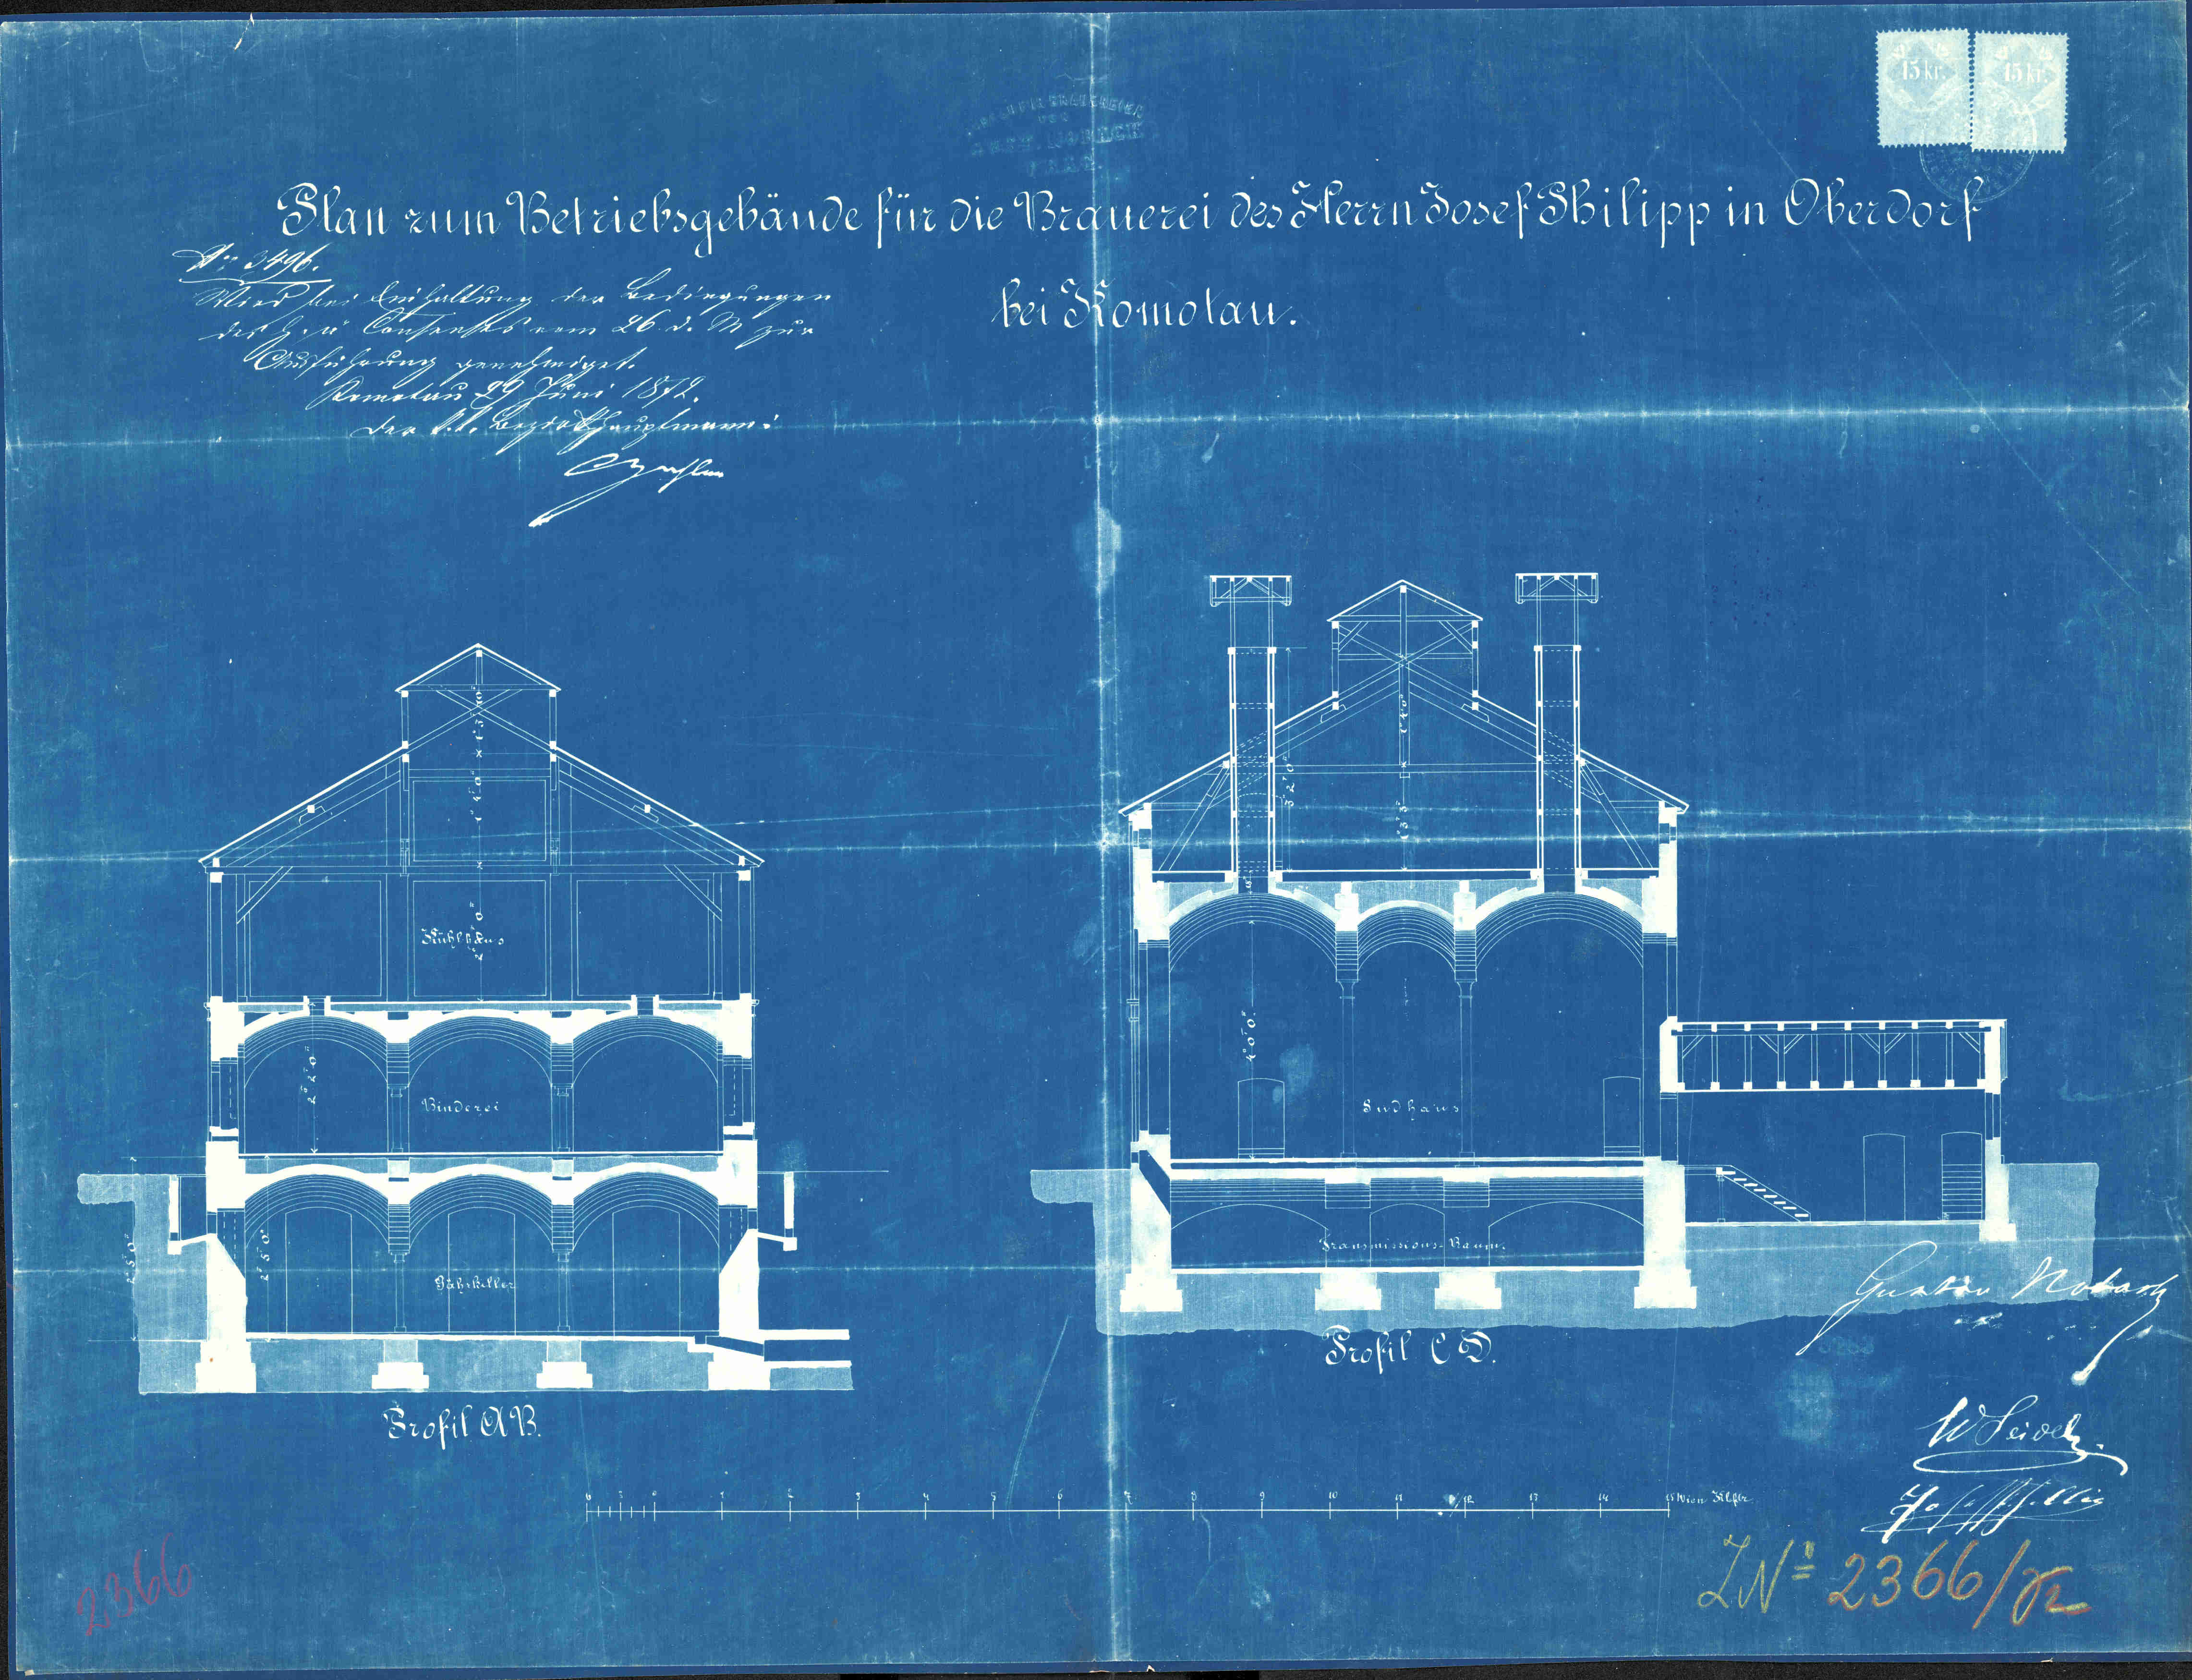 15 kr. 15 kr.
Plan zum Betriebsgebäude für die Brauerei des Herrn Josef Philipp in Oberdorf
bei Komotau.
No 3496.
Wird bei Einhaltung der Bedingungen
des h. ä. Consenses vom 26 d. M zur
Ausführung genehmiget.
Komotau 29 Juni 1872.
Der k. k. Bezirkshauptmann:
Kühlhaus
Binderei
Gährkeller
Profil AB.
Sudhaus
4° 0' 0"
Transmissions-Raum.
Profil CD.
Gustav Noback
W Seidel
0 1 2 3 4 5 6 7 8 9 10 11 12 13 14 15 Wien Klftr.
2366
ZNo 2366/72